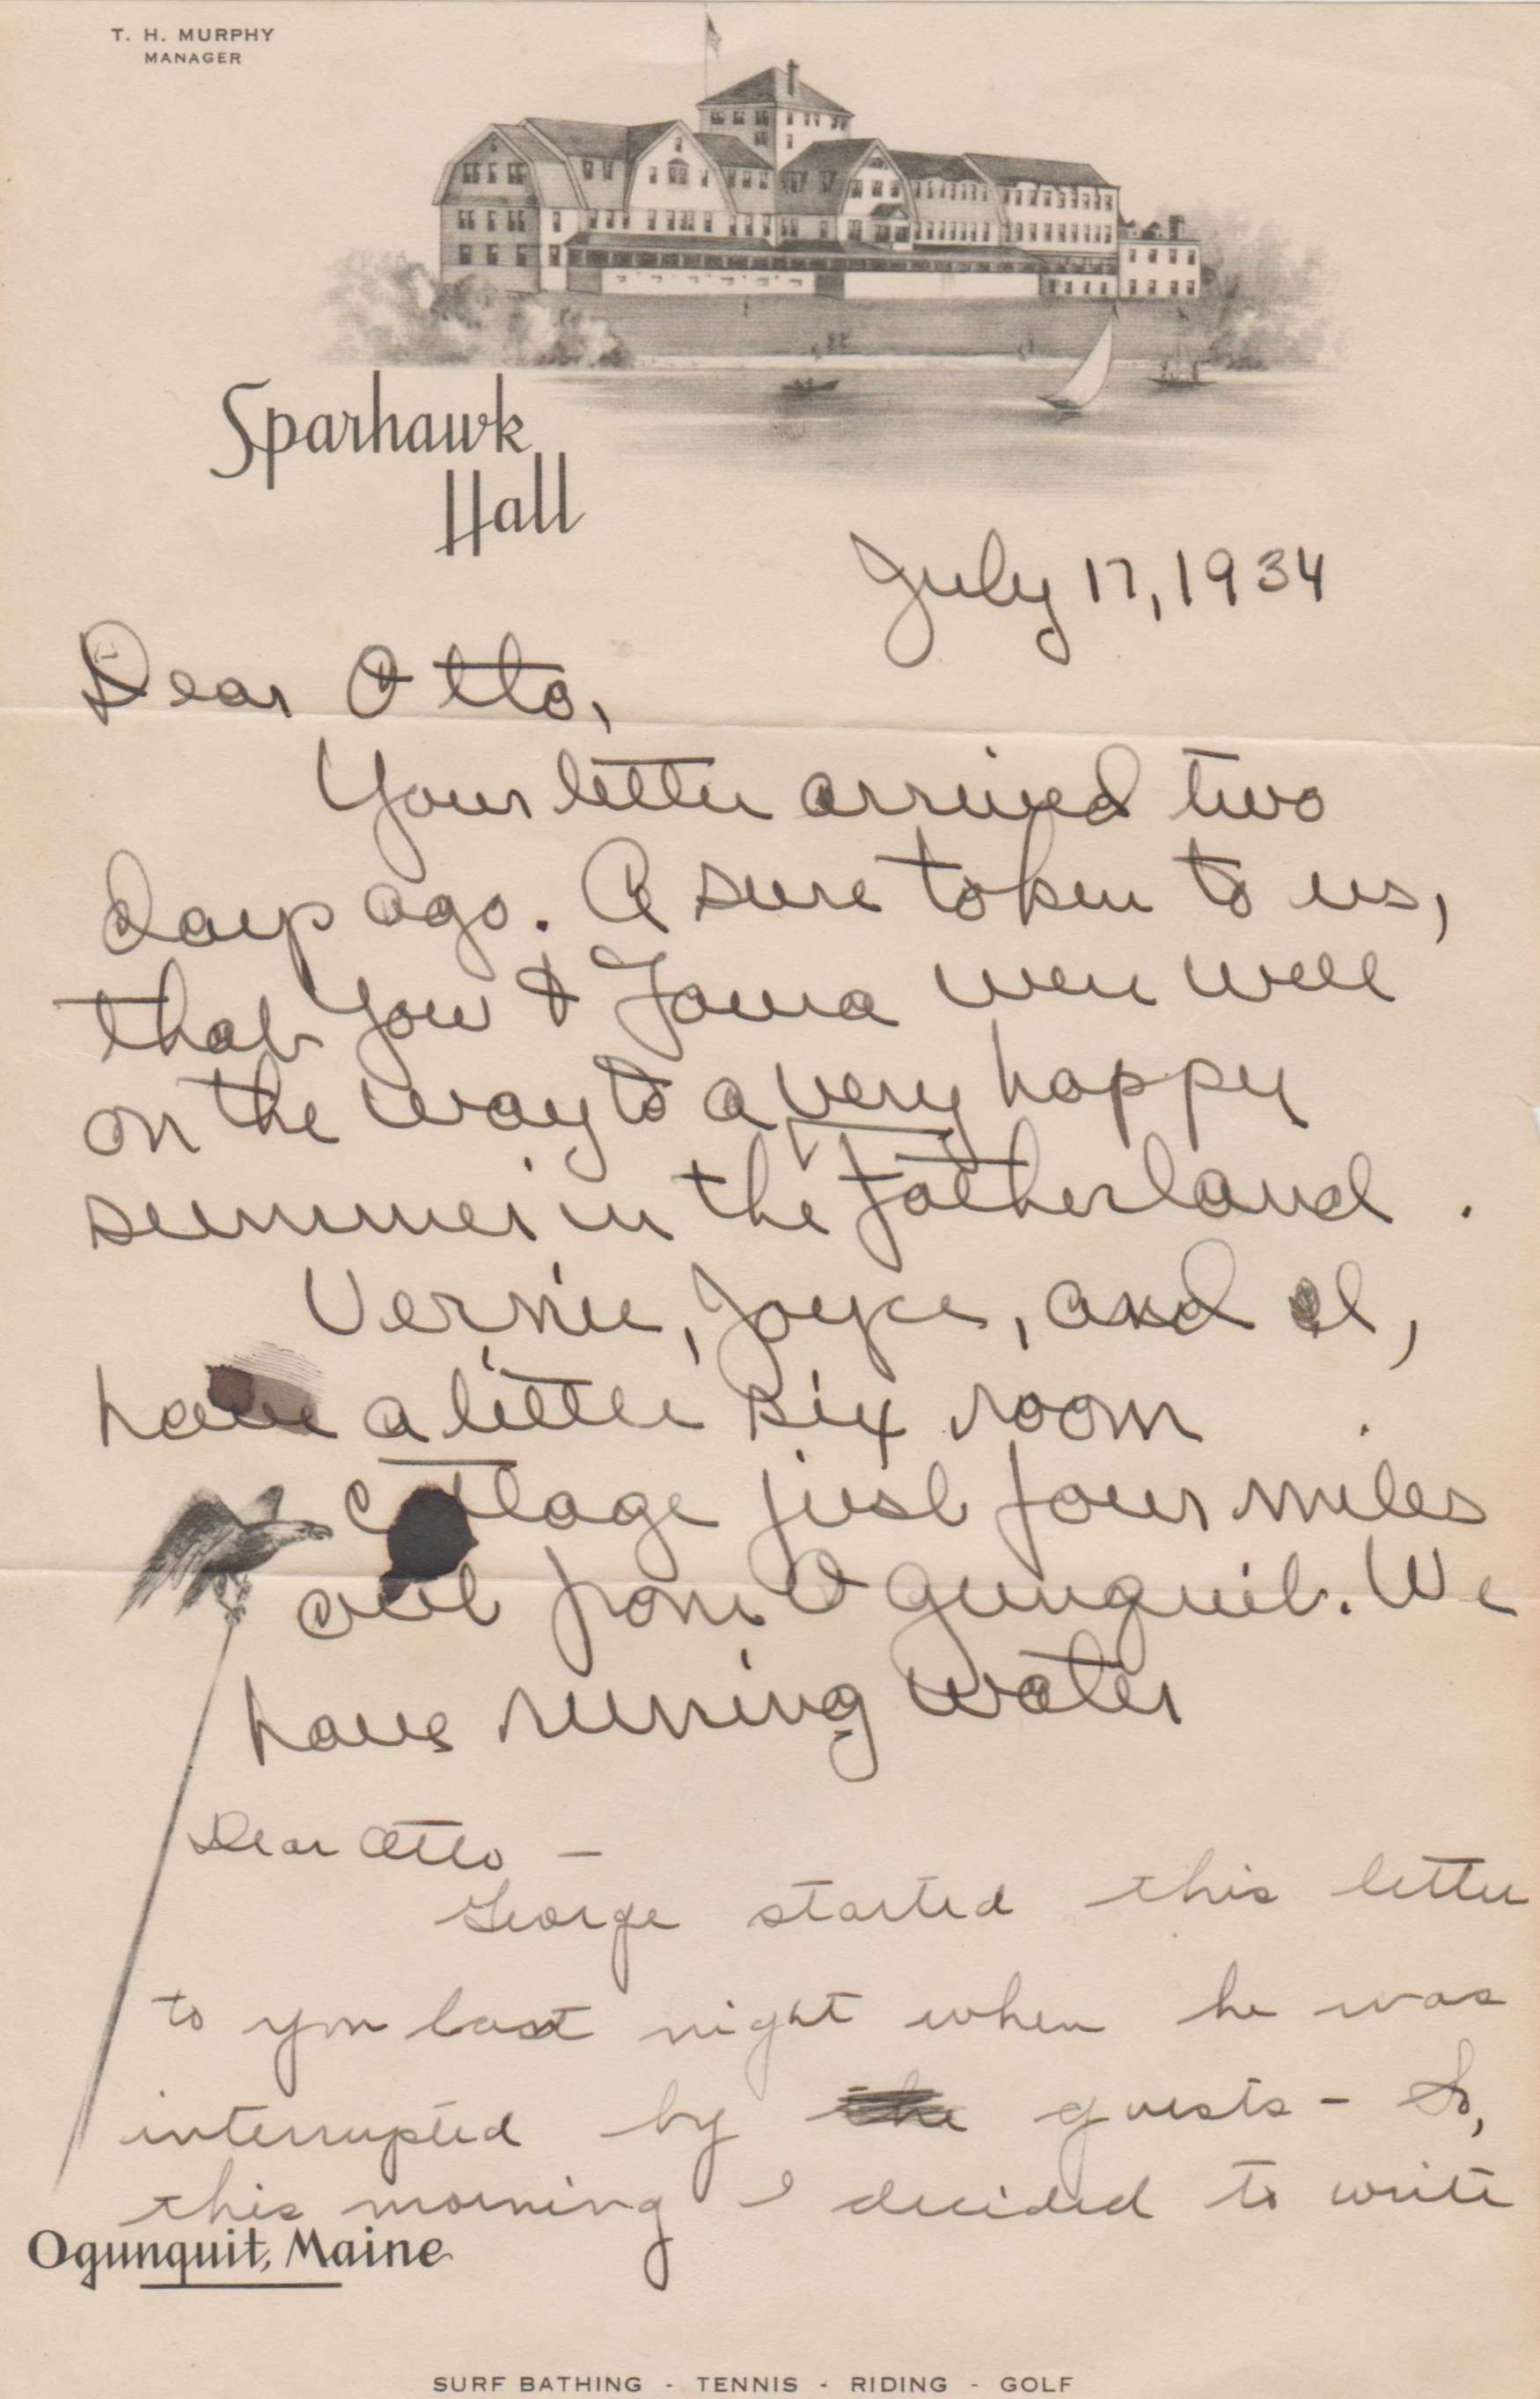 T. H. MURPHY
MANAGER
Sparhawk
Hall
July 17, 1934
Dear Otto,
Your letter arrived two
days ago. A sure token to us,
that you & were well
on the way to a very happy
summer in the Fatherland.
Vernie, Joyce, and I,
have a little six room
cottage just four miles
out from Ogunquit. We
have runing water
Dear Otto —
George started this letter
to you last night when he was
interrupted by the guests - So,
this morning I decided to write
Ogunquit, Maine
SURF BATHING - TENNIS - RIDING - GOLF